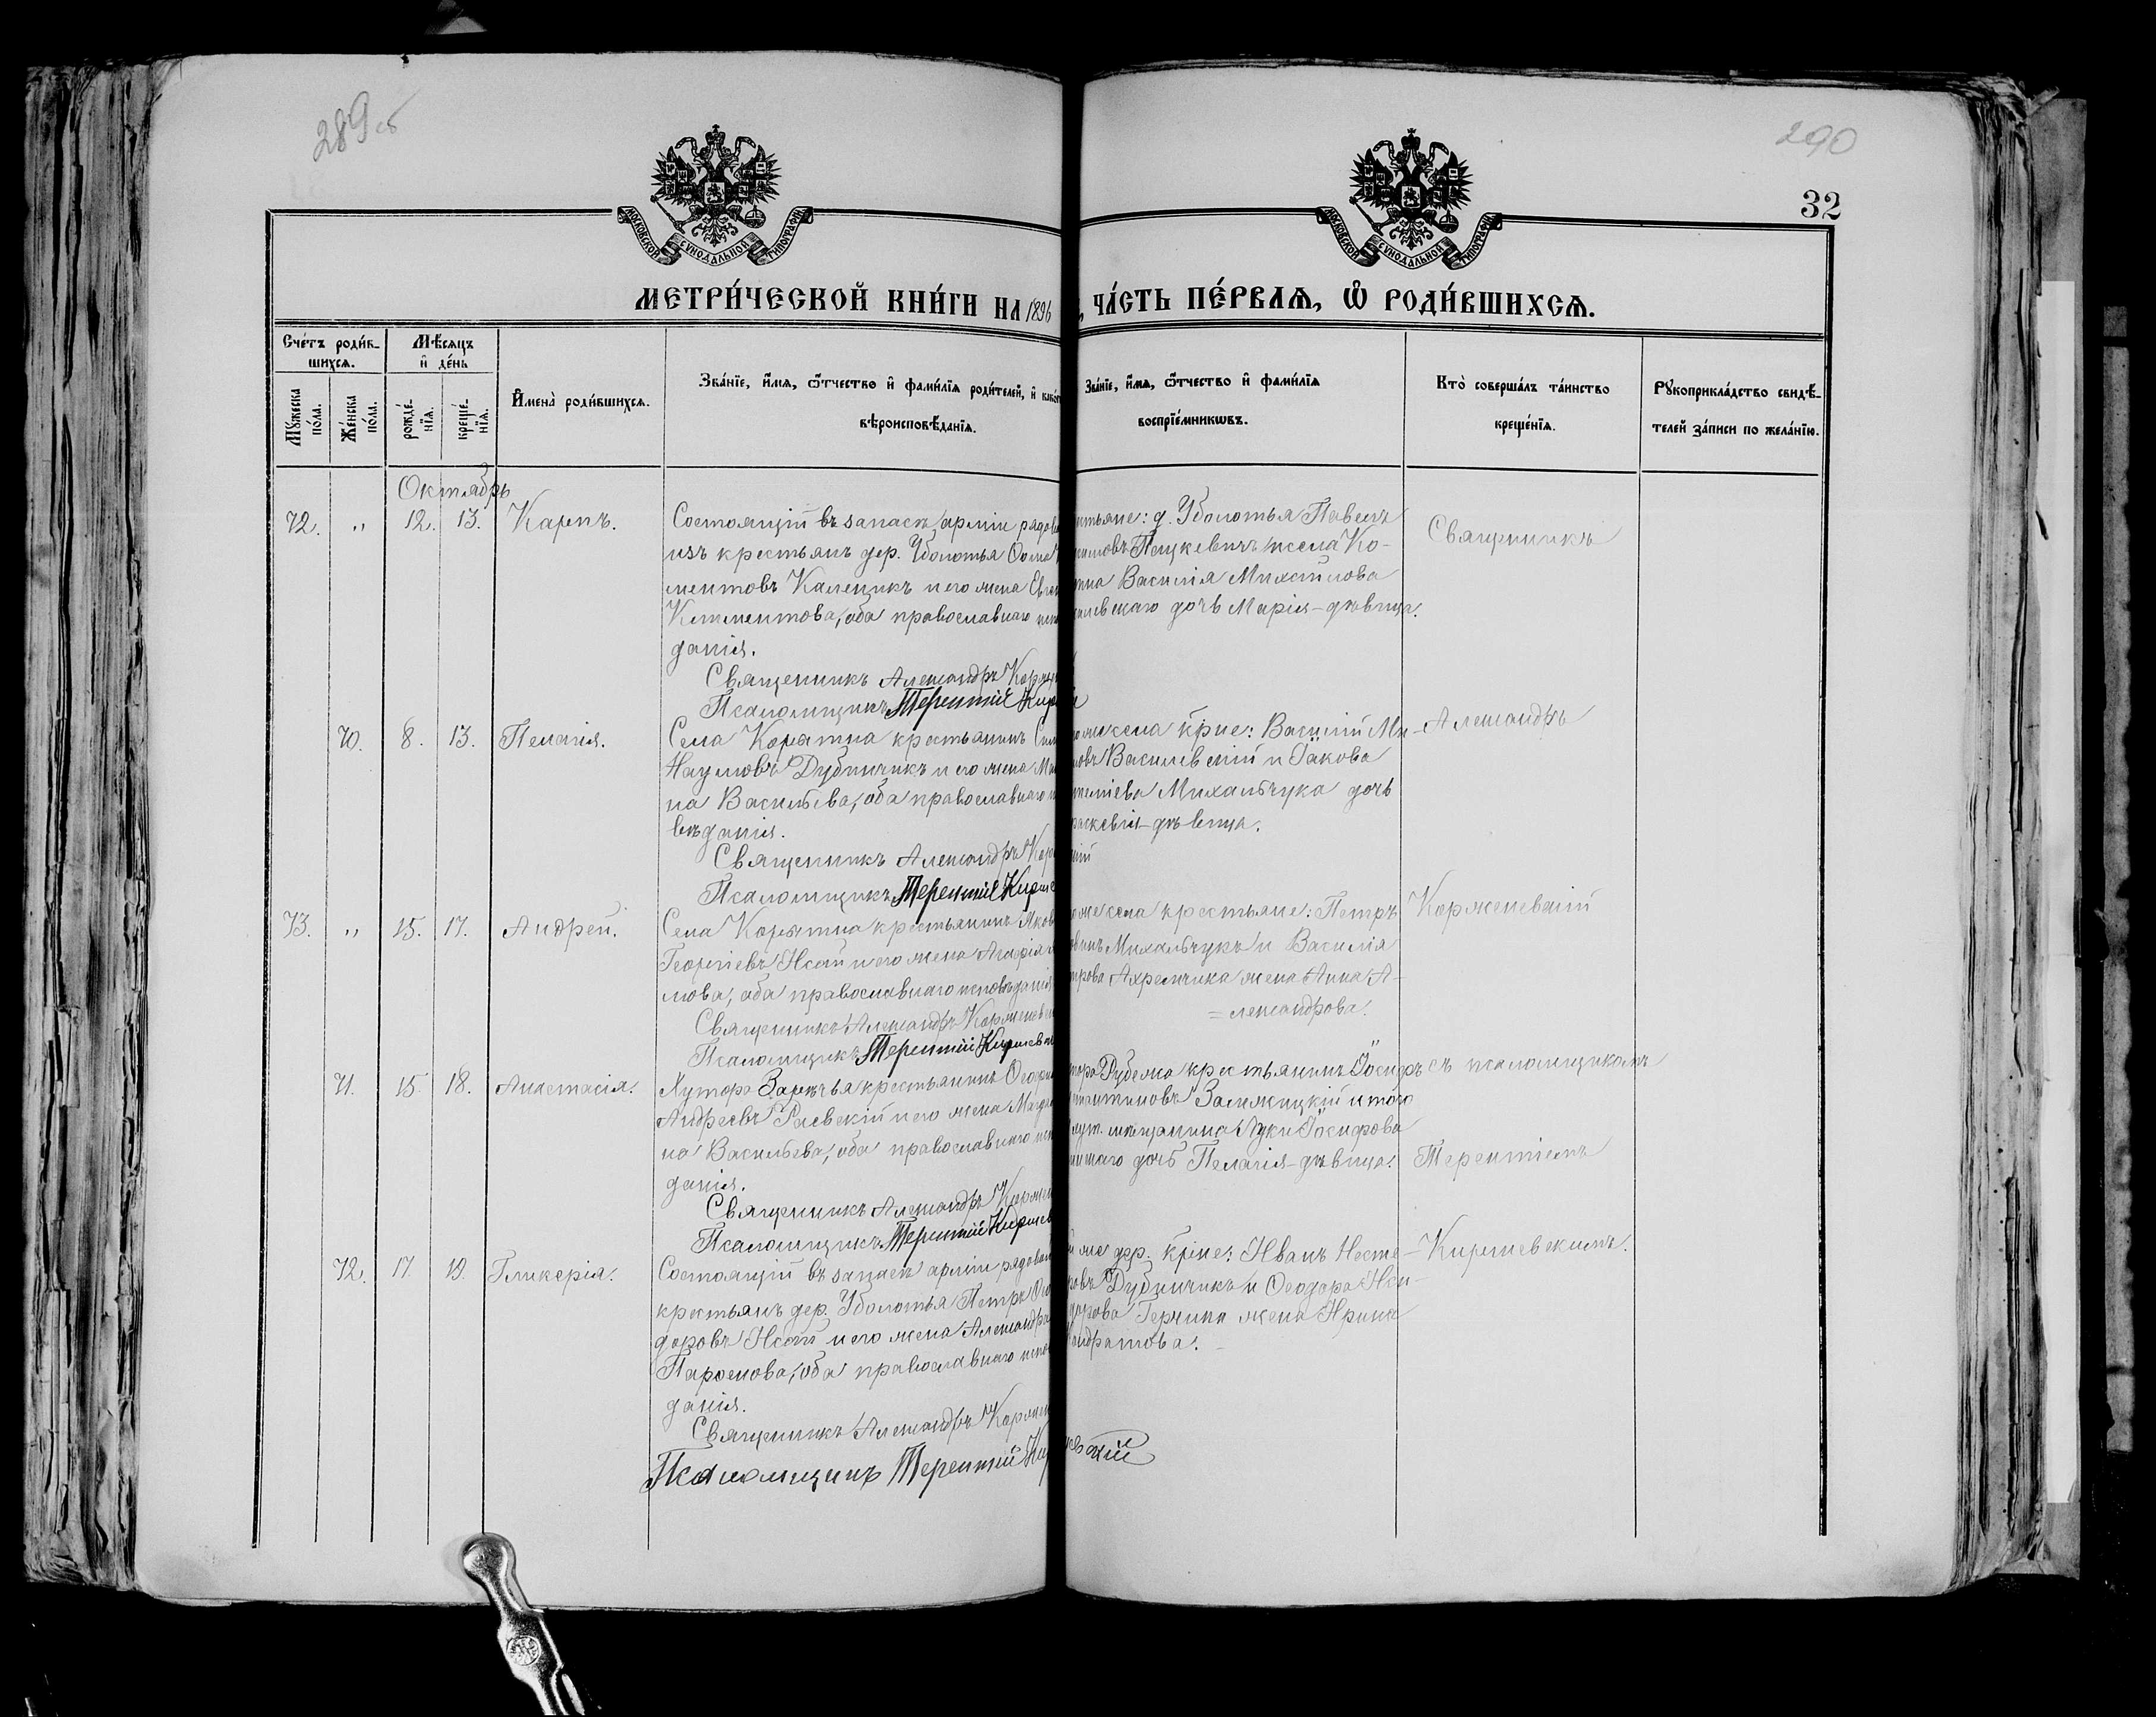 289 об
290
32
МОСКОВСКОЙ СѴНОДАЛЬНОЙ ТИПОГРАФІИ
МОСКОВСКОЙ СѴНОДАЛЬНОЙ ТИПОГРАФІИ
МЕТРИ́ЧЕСКОЙ КНИ́ГИ НА 1896 , ЧА́СТЬ ПЕ́РВАѦ, Ѡ҆ РОДИ́ВШИХСѦ.
Сче́тъ роди́в-
шихсѧ.
Мꙋ́жеска по́ла.
Же́нска по́ла.
Мѣ́сѧцъ
и҆ де́нь
рожде́-
нїѧ.
креще́-
нїѧ.
И҆мена̀ роди́вшихсѧ.
Зва́нїе, и҆́мѧ, ѻ҆́тчество и҆ фами́лїѧ роди́телей, и҆ како
вѣроисповѣ́данїѧ.
Зва́нїе, и҆́мѧ, ѻ҆́тчество и҆ фами́лїѧ
воспрїе́мникѡвъ.
Кто̀ соверша́лъ та́инство
креще́нїѧ.
Рꙋкоприкла́дство свидѣ́-
телей за́писи по жела́нїю.
Октябрь
72. " 12. 13. Карпъ.
Состоящій въ запасѣ арміи рядов
изъ крестьянъ дер. Уболотья Ѳома
ментовъ Калещикъ и его жена Евген
Климентова, оба православнаго испо
данія.
Священникъ Александръ Корже
Псаломщикъ Терентій Кирш
стьяне: д. Уболотья Павелъ
Пацкевичъ и села Ко-
тна Василія Михайлова
силевскаго дочь Марія-дѣвица.
Священникъ
70. 8. 13. Пелагія.
Села Корятна крестьянинъ Сим
Наумовъ Дубинчикъ и его жена Ма
на Васильева, оба православнаго и
вѣданія.
Священникъ Александръ Корж
Псаломщикъ Терентій Кирше
ого же села кр̃не: Василій Ми-
ловъ Василевскій и Іакова
Михальчука дочь
раскевія-дѣвица.
Александръ
73. " 15. 17. Андрей.
Села Корятна крестьянинъ Яков
Георгіевъ Исай и его жена Агафія
мова, оба православнаго исповѣданія
Священникъ Александръ Корженев
Псаломщикъ Терентій Киршев
ого же села крестьяне: Петръ
Михальчукъ и Василія
трова Ахремчика жена Анна А-
=лександрова.
Корженевскій
71. 15. 18. Анастасія.
Хутора Зарѣчья крестьянинъ Ѳеоф
Андреевъ Раевскій и его жена Магда
на Васильева, оба православнаго исп
данія.
Священникъ Александръ Корже
Псаломщикъ Терентій Киршев
тора Рубежа крестьянинъ Іосифъ
стантиновъ Залижицкій и того
хут. мѣщанина Луки Іосифова
скаго дочь Пелагія-дѣвица.
съ псаломщикомъ
Терентіемъ
72. 17. 19. Гликерія.
Состоящій въ запасѣ арміи рядовой
крестьянъ дер. Уболотья Петръ Ѳео
доровъ Исай и его жена Александра
Парѳенова, оба православнаго испо
данія.
Священникъ Александръ Корже
Псаломщикъ Терентій Киршевскій
й же дер. кр̃не: Иванъ Несте-
ровъ Дубинчикъ и Ѳеодора Иси-
дорова Герчина жена Ирина
Кондратова.
Киршевскимъ.